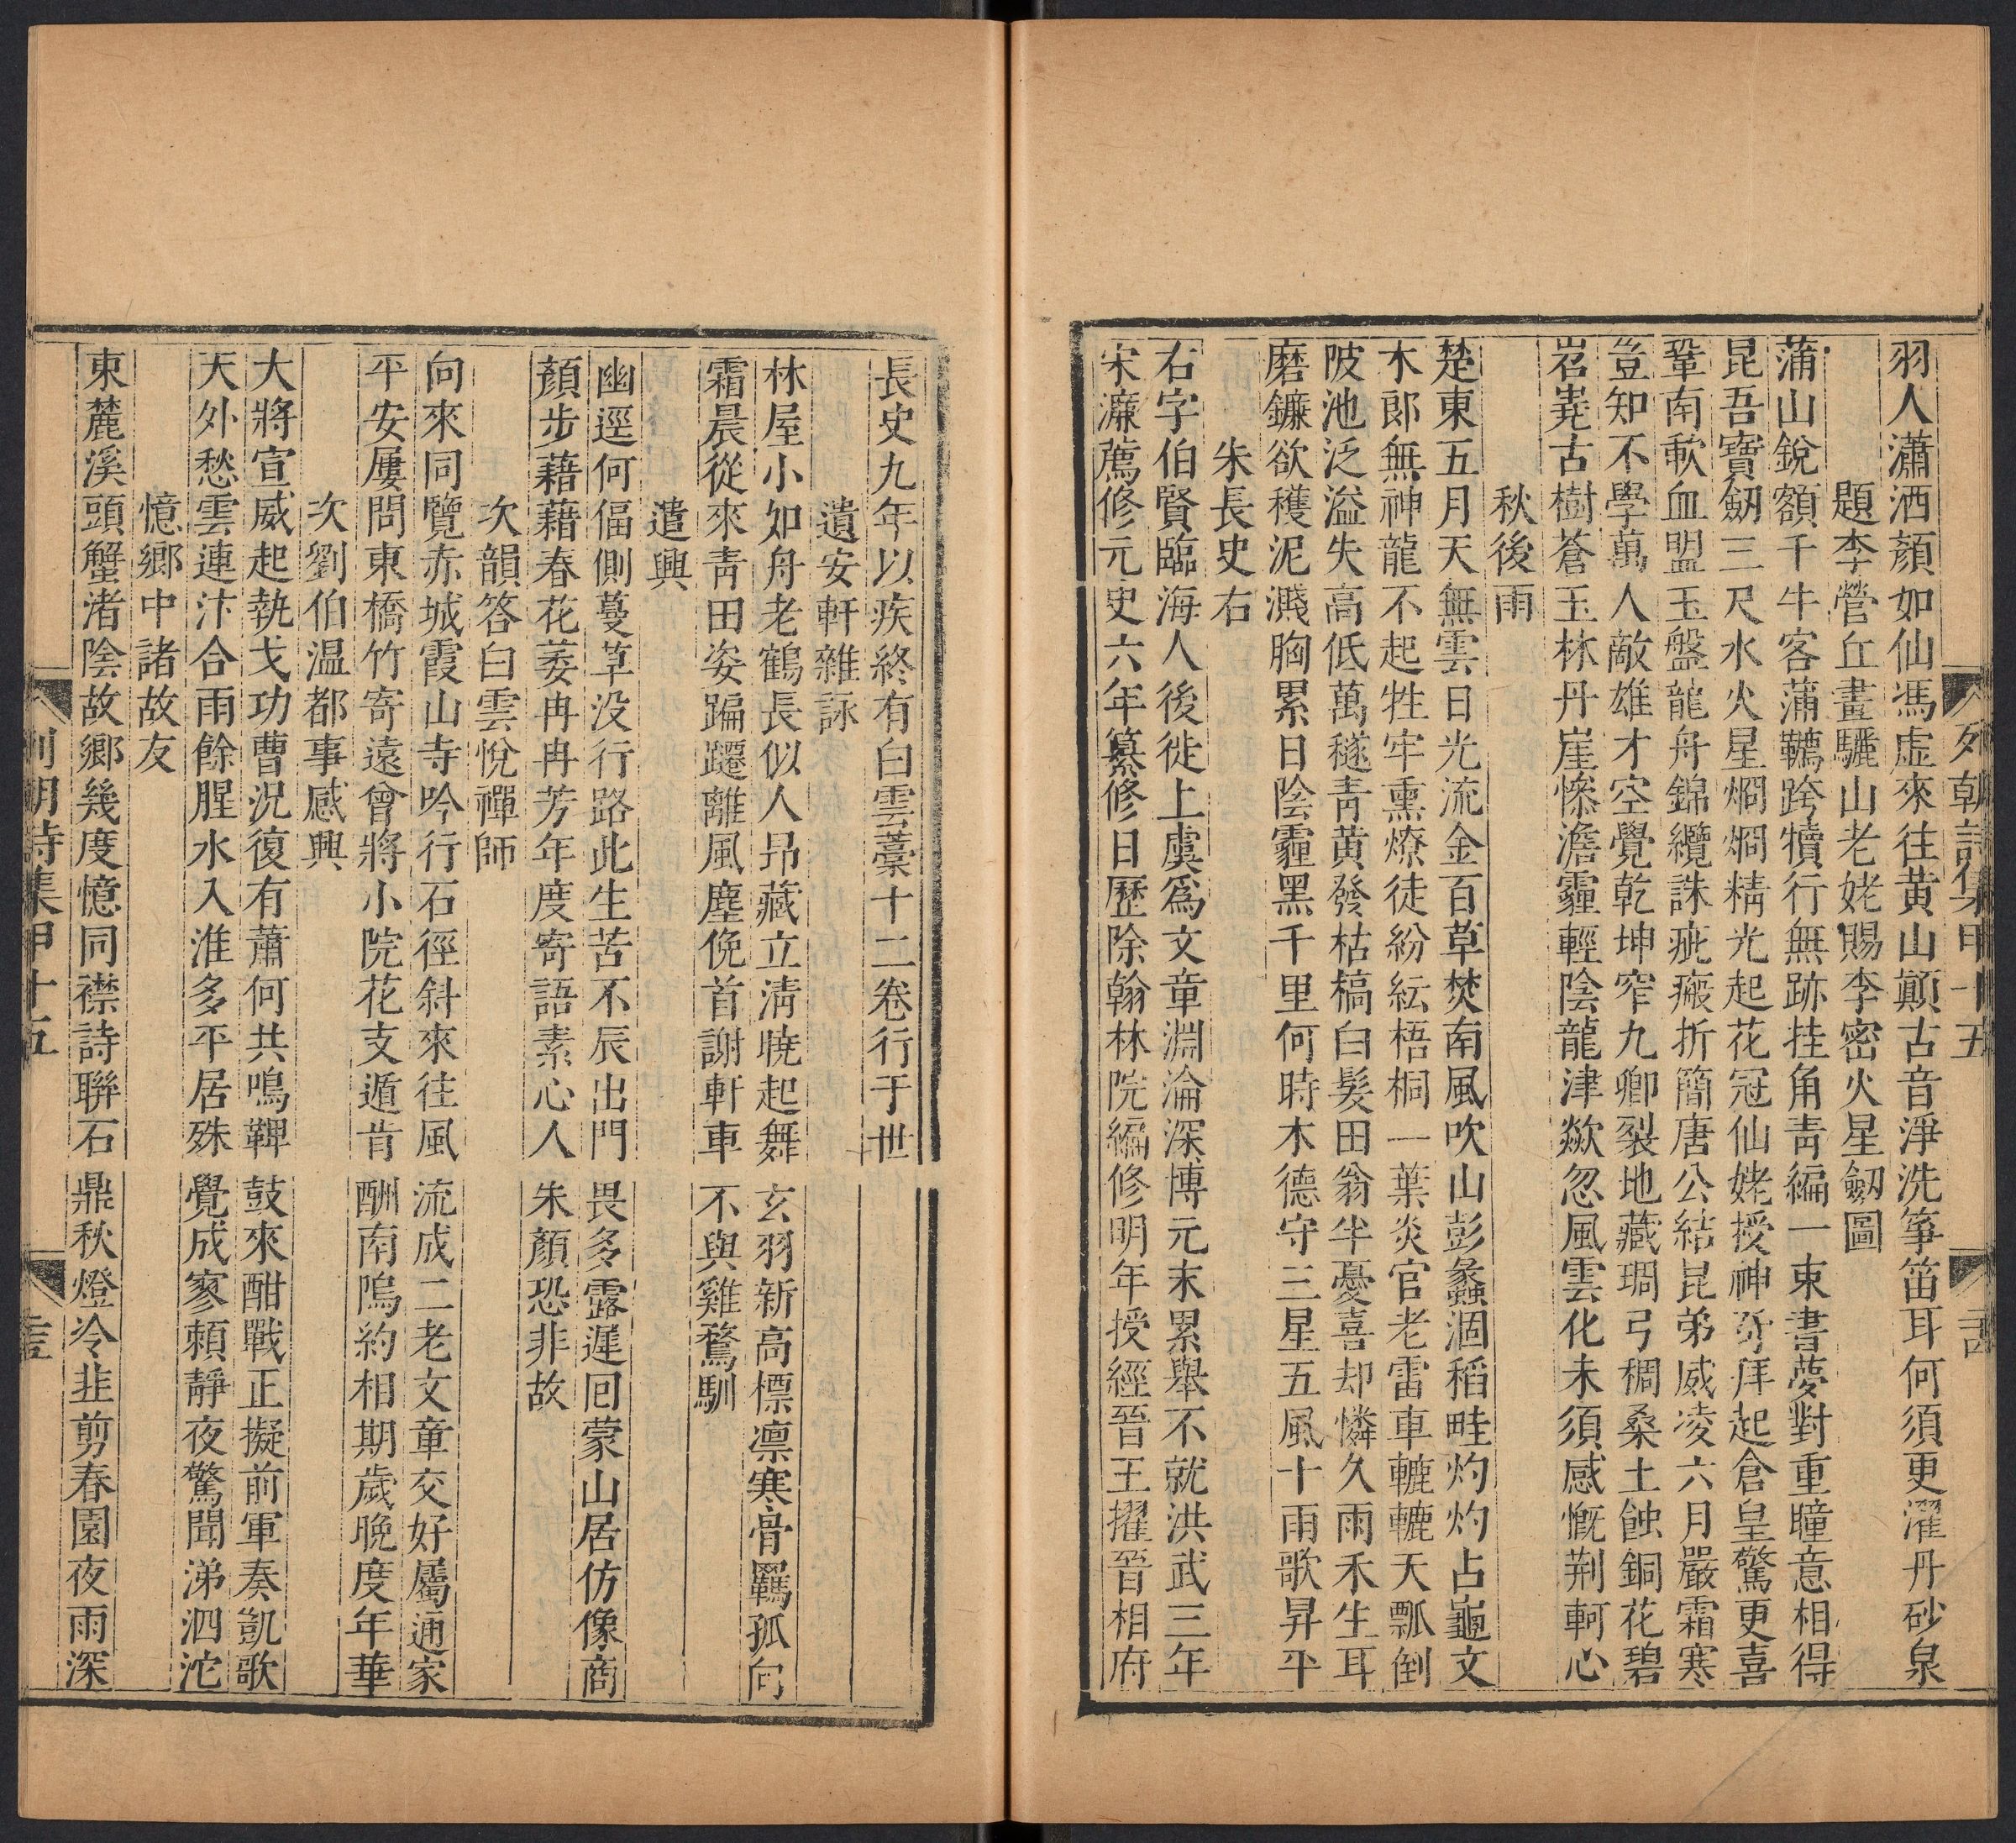 列朝詩集甲十五
羽人瀟洒顏如仙馮虛來往黃山顛古音淨洗箏笛耳何須更濯丹砂泉
題李營丘畫驪山老姥賜李密火星劒圖
蒲山銳額千牛客蒲韉跨犢行無跡挂角靑編一束書夢對重瞳意相得
昆吾寶劒三尺水火星烱烱精光起花冠仙姥授神訝拜起倉皇驚更喜
鞏南歃血盟玉盤龍舟錦纜誅疵瘢折簡唐公結昆弟威凌六月嚴霜寒
豈知不學萬人敵雄才空覺乾坤窄九卿裂地藏琱弓稠桑土蝕銅花碧
岧嶤古樹蒼玉林丹崖慘澹霾輕陰龍津歘忽風雲化未須感慨荆軻心
秋後雨
楚東五月天無雲日光流金百草焚南風吹山彭蠡涸稻畦灼灼占龜文
木郎無神龍不起牲牢熏燎徒紛紜梧桐一葉炎官老雷車轆轆天瓢倒
陂池泛溢失高低萬穟靑黃發枯槁白髮田翁半憂喜却憐久雨禾生耳
磨鐮欲穫泥濺胸累日陰霾黑千里何時木德守三星五風十雨歌昇平
朱長史右
右字伯賢臨海人後徙上虞爲文章淵淪深博元末累舉不就洪武三年
宋濂薦修元史六年纂修日歷除翰林院編修明年授經晉王擢晉相府
長史九年以疾終有白雲藁十二卷行于世
遺安軒雜詠
林屋小如舟老鶴長似人昂藏立淸曉起舞玄羽新高標凛寒骨羈孤向
霜晨從來靑田姿蹁躚離風塵俛首謝軒車不與雞鶩馴
遣興
幽逕何偪側蔓草没行路此生苦不辰出門畏多露遲回蒙山居仿像商
顏步藉藉春花萎冉冉芳年度寄語素心人朱顏恐非故
次韻答白雲悅禪師
向來同覽赤城霞山寺吟行石徑斜來往風流成二老文章交好屬通家
平安屢問東橋竹寄遠曾將小院花支遁肯酬南塢約相期歲晚度年華
次劉伯温都事感興
大將宣威起執戈功曹況復有蕭何共鳴鞞鼓來酣戰正擬前軍奏凱歌
天外愁雲連汴合雨餘腥水入淮多平居殊覺成寥頼靜夜驚聞涕泗沱
憶鄉中諸故友
東麓溪頭蟹渚陰故鄉幾度憶同襟詩聯石鼎秋燈冷韭剪春園夜雨深
列朝詩集甲十五